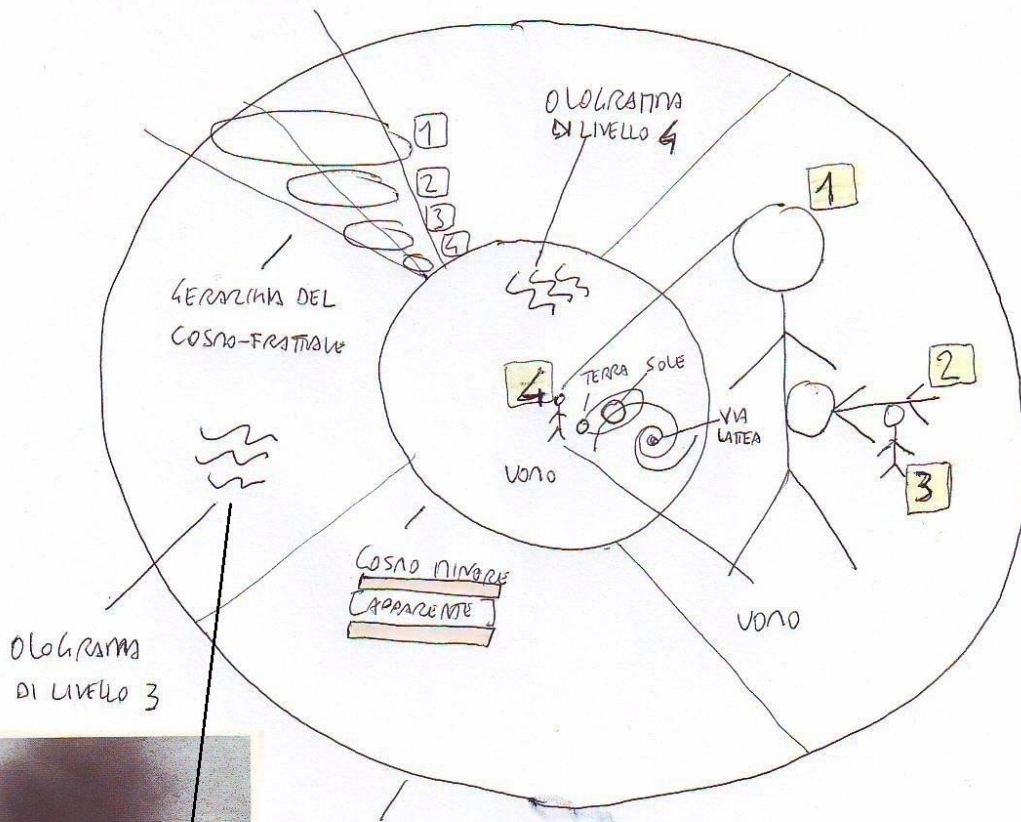 OLOGRAMMA
DI LIVELLO 4
1
2
3
4
1
GERARCHIA DEL
COSMO-FRATTALE
4
TERRA
SOLE
2
VIA
LATTEA
UOMO
3
COSMO MINORE
[APPARENTE]
UOMO
OLOGRAMMA
DI LIVELLO 3